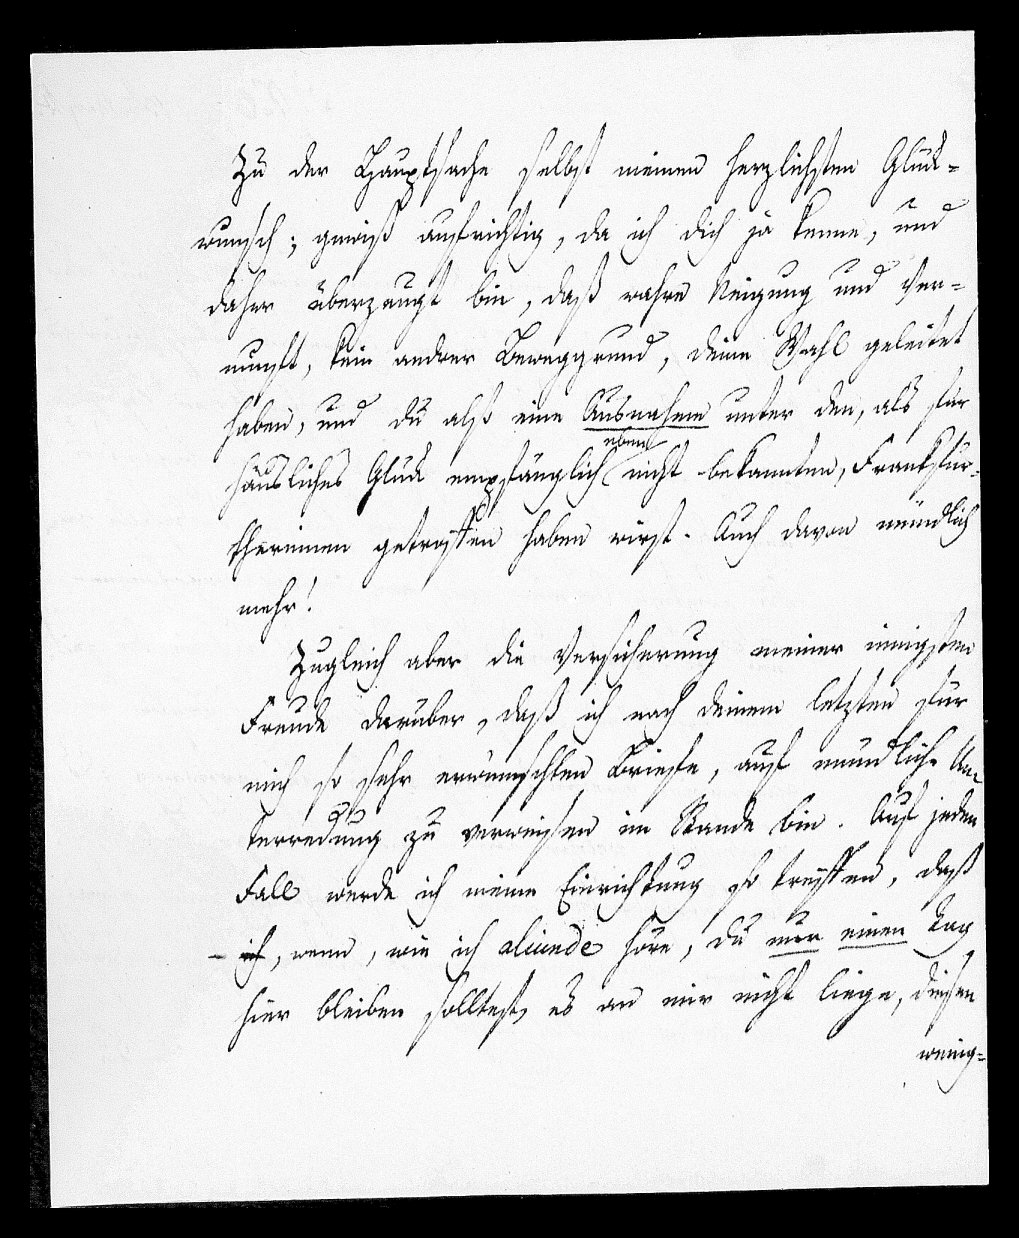 Zu der Hauptsache selbst meinen herzlichsten Glück-
wunsch; gewiß aufrichtig, da ich dich ja kenne, und
daher überzeugt bin, daß wahre Neigung und Ver-
nunft, kein andrer Beweggrund, deine Wahl geleitet
haben, und du also eine Ausnahme unter den, als für
häusliches Glück empfänglich eben nicht bekannten, Frankfur-
therinnen getroffen haben wirst. Auch davon mündlich
mehr!
Zugleich aber die Versicherung meiner innigsten
Freude darüber, daß ich nach deinem letzten für
mich so sehr erwünschten Briefe, auf mündliche Un-
terredung zu verweisen im Stande bin. Auf jeden
Fall werde ich meine Einrichtung so treffen, daß
ich, wenn, wie ich aliunde höre, du nur einen Tag
hier bleiben solltest, es an mir nicht liege, diesen
wenig-